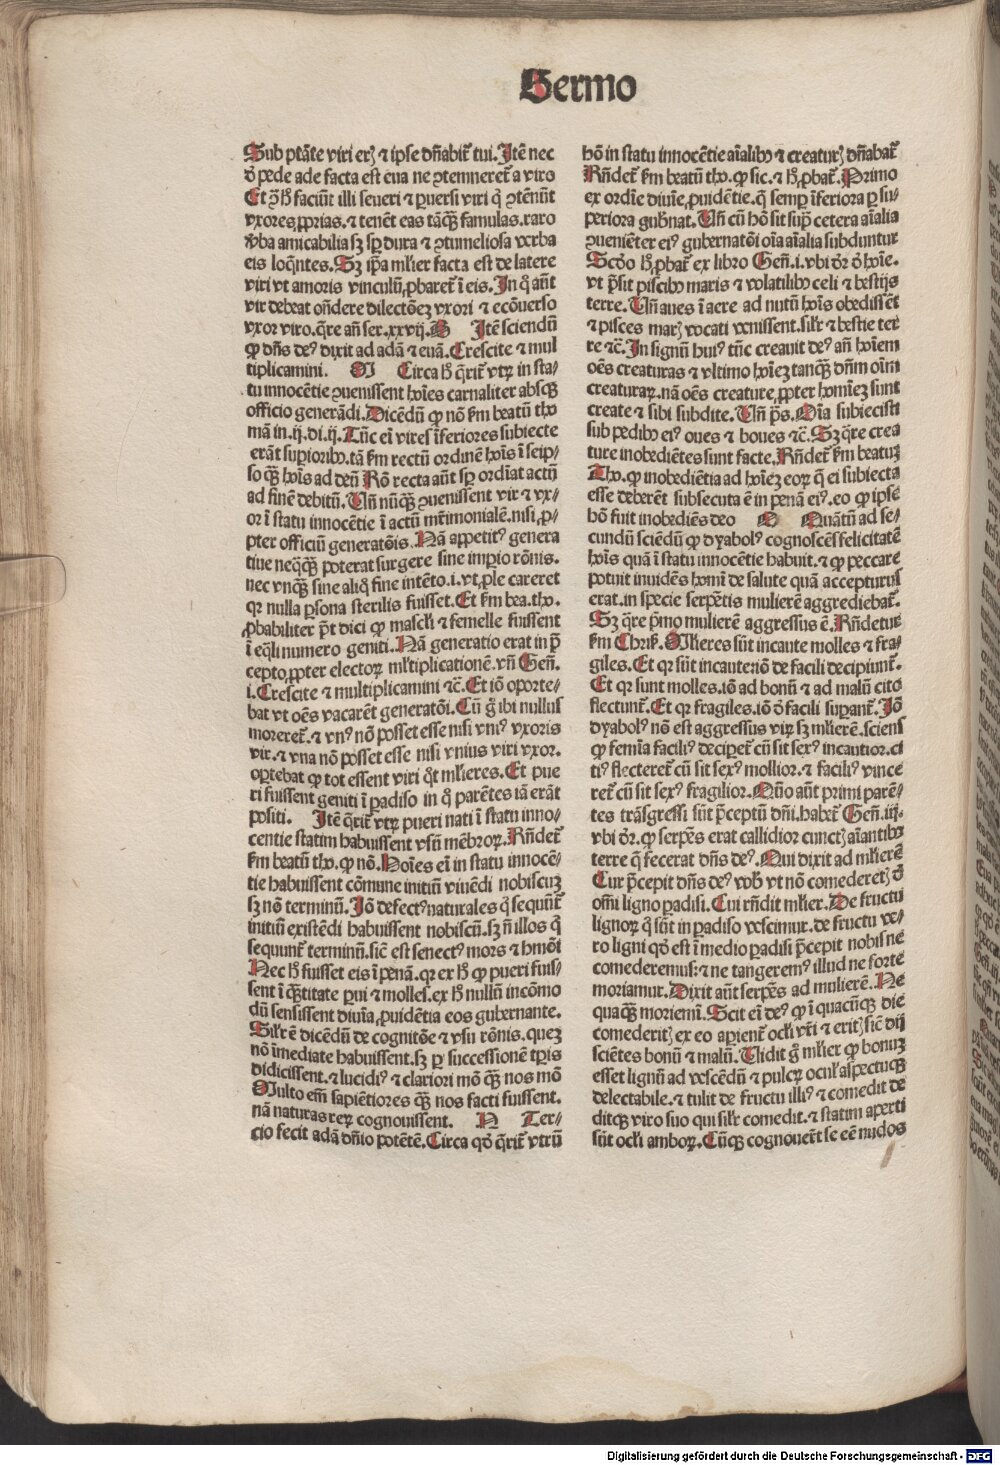 Sermo
Sub ptāte viri erꝭ ⁊ ipse dn̄abit̄ tui. Itē nec
ď pede ade facta est eua ne ꝯtemneret̄ a viro
Et ꝯ̈ hͦ faciūt illi seueri ⁊ ꝑuersi viri qͥ ꝯtēnūt
vxores ꝓprias. ⁊ tenēt eas tāqꝫ famulas. raro
v̓ba amicabilia sꝫ sꝑ dura ⁊ ꝯtumeliosa verba
eis loq̄ntes. Sꝫ ip̄a mlier facta est de latere
viri vt amoris vinculū ꝓbaret̄ ī eis. In qͦ aūt
vir debeat on̄dere dilectōeꝫ vxori ⁊ ecōuerso
vxor viro. q̄re an̄ ser. xxvij. G Itē sciendū
ꝙ dn̄s deꝰ dixit ad adā ⁊ euā. Crescite ⁊ mul
tiplicamini. M Circa hͦ q̄rit̄ vtꝝ in sta⸗
tu innocētie ꝯuenissent hoīes carnaliter absqꝫ
officio generādi. Dicēdū ꝙ nō ẜm beatū tho
mā in .ij. di. ij. Tūc eī vires īferiores subiecte
erāt suꝑioribꝰ. tā ẜm rectū ordinē hoīs ī seip⸗
so qꝫ hoīs ad deū Rō recta aūt sꝑ ordīat actū
ad finē debitū. Vn̄ nūqꝫ ꝯuenissent vir ⁊ vx⸗
or ī statu innocētie ī actū mr̄imonialē. nisi ꝓ⸗
pter officiū generatōis. Nā appetitꝰ genera
tiue neqꝫqꝫ poterat surgere sine imꝑio rōnis.
nec vnqꝫ sine aliq̄ fine intēto .i. vt ꝓle careret
qꝛ nulla ꝑsona sterilis fuisset. Et ẜm bea. tho.
ꝓbabiliter pt̄ dici ꝙ mascli ⁊ femelle fuissent
ī eq̄li numero geniti. Nā generatio erat in p̄
cepto ꝓpter electoꝝ mltiplicationē. vn̄ Gen̄.
i. Crescite ⁊ multiplicamini ⁊c̄. Et iō oporte⸗
bat vt oēs vacarēt generatōi. Cū gͦ ibi nullus
moreret̄. ⁊ vnꝰ nō posset esse nisi vniꝰ vxoris
vir. ⁊ vna nō posset esse nisi vnius viri vxor.
oportebat ꝙ tot essent viri qͦt mlieres. Et pue
ri fuissent geniti ī ꝑadiso in qͦ parētes iā erāt
positi. Itē q̄rit̄ vtꝝ pueri nati ī statu inno⸗
centie statim habuissent vsū mēbroꝝ. Rn̄det̄
ẜm beatū tho. ꝙ nō. Hoīes eī in statu innocē⸗
tie habuissent cōmune initiū viuēdi nobiscuꝫ
sꝫ nō terminū. Iō defectꝰ naturales qͥ sequūt̄
initiū existēdi habuissent nobiscū. sꝫ n̄ illos qͥ
sequunt̄ terminū. sic̄ est senectꝰ mors ⁊ hmōi
Nec hͦ fuisset eis ī penā. qꝛ ex hͦ ꝙ pueri fuis⸗
sent ī qꝫtitate ꝑui ⁊ molles. ex hͦ nullū incōmo
dū sensissent diuīa ꝓuidētia eos gubernante.
Silr ē dicēdū de cognitōe ⁊ vsu rōnis. queꝫ
nō īmediate habuissent. sꝫ ꝑ successionē tꝑis
didicissent. ⁊ lucidiꝰ ⁊ clariori mō qꝫ nos mō
Multo em̄ sapiētiores qꝫ nos facti fuissent.
nā naturas reꝝ cognouissent. N Ter⸗
cio fecit adā dn̄io potētē. Circa qd̓ q̄rit̄ vtrū
hō in statu innocētie aīalibꝰ ⁊ creaturꝭ dn̄abat̄
Rn̄det̄ ẜm beatū tho. ꝙ sic. ⁊ hͦ ꝓbat̄. Primo
ex ordīe diuīe ꝓuidētie. qͥ semꝑ īferiora ꝑ su⸗
periora gub̓nat. Vn̄ cū hō sit supͣ cetera aīalia
ꝯueniēter eiꝰ gubernatōi oīa aīalia subduntur
Scd̓o hͦ ꝓbat̄ ex libro Gen̄. i. vbi dr̄ ď hoīe.
vt p̄sit piscibꝰ maris ⁊ volatilibꝰ celi ⁊ bestijs
terre. Vn̄ aues ī aere ad nutū hoīs obedissēt
⁊ pisces marꝭ vocati venissent. silr ⁊ bestie ter
re ⁊c̄. In signū huiꝰ tūc creauit deꝰ an̄ hoīem
oēs creaturas ⁊ vltimo hoīeꝫ tanqꝫ dn̄m oīm
creaturaꝝ. nā oēs creature ꝓpter homīeꝫ sunt
create ⁊ sibi subdite. Vn̄ ps̄. Oīa subiecisti
sub pedibꝰ eiꝰ oues ⁊ boues ⁊c̄. Sꝫ q̄re crea
ture inobediētes sunt facte. Rn̄det̄ ẜm beatuꝫ
Tho. ꝙ inobediētia ad hoīeꝫ eoꝝ q̄ ei subiecta
esse deberēt subsecuta ē in penā eiꝰ. eo ꝙ ipse
hō fuit inobediēs deo O Quātū ad se⸗
cundū sciēdū ꝙ dyabolꝰ cognoscēs felicitatē
hoīs quā ī statu innocētie habuit. ⁊ ꝙ peccare
potuit inuidēs homī de salute quā accepturus
erat. in specie serpētis mulierē aggrediebat̄.
Sꝫ q̄re pͥmo mulierē aggressus ē. Rn̄detur
ẜm Chris̄. Mlieres sūt incaute molles ⁊ fra⸗
giles. Et qꝛ sūt incautiō de facili decipiunt̄.
Et qꝛ sunt molles. iō ad bonū ⁊ ad malū cito
flectunt̄. Et qꝛ fragiles. iō ď facili suꝑant̄. Iō
dyabolꝰ nō est aggressus viꝝ sꝫ mlierē. sciens
ꝙ femīa faciliꝰ deciꝑet̄ cū sit sexꝰ incautior. ci
tiꝰ flecteret̄ cū sit sexꝰ mollior. ⁊ faciliꝰ vince
ret̄ cū sit sexꝰ fragilior. Quō aūt primi parē⸗
tes trāsgressi sūt p̄ceptū dn̄i. habet̄ Gen̄. iij.
vbi dr̄. ꝙ serpēs erat callidior cunctꝭ aīantibꝰ
terre q̄ fecerat dn̄s deꝰ. Qui dixit ad mlierē
Cur p̄cepit dn̄s deꝰ vob̓ vt nō comederetꝭ ď
om̄i ligno ꝑadisi. Cui rn̄dit mlier. De fructu
lignoꝝ qͥ sūt in ꝑadiso vescimur. de fructu ve⸗
ro ligni qd̓ est ī medio ꝑadisi p̄cepit nobis ne
comederemus: ⁊ ne tangeremꝰ illud ne forte
moriamur. Dixit aūt serpēs ad mulierē. Ne
quaqꝫ moriemī. Scit eī deꝰ ꝙ ī quacūqꝫ die
comederitꝭ ex eo aꝑient̄ ocli vr̄i ⁊ eritꝭ sic̄ dij
sciētes bonū ⁊ malū. Vidit gͦ mlier ꝙ bonuꝫ
esset lignū ad vescēdū ⁊ pulcrꝫ oculꝭ aspectuqꝫ
delectabile. ⁊ tulit de fructu illiꝰ ⁊ comedit de
ditqꝫ viro suo qui silr comedit. ⁊ statim aperti
sūt ocli amboꝝ. Cūqꝫ cognouer̄t se eē nudos
Digitalisierung gefördert durch die Deutsche Forschungsgemeinschaft - DFG